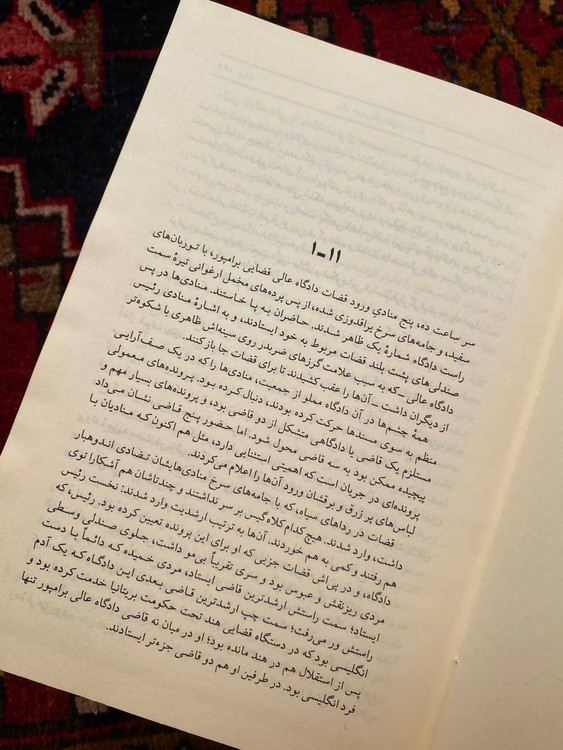 ۱-۱۱
سر ساعت ده، پنج منادیِ ورود قضات دادگاه عالی قضایی برامپور، با توربان‌های
سفید، و جامه‌های سرخ یراقدوزی شده، از پس پرده‌های مخمل ارغوانی تیرهٔ سمت
راست دادگاه شمارهٔ یک ظاهر شدند. حاضران به پا خاستند. منادی‌ها در پس
صندلی‌های پشت بلند قضات مربوط به خود ایستادند، و به اشارهٔ منادی رئیس
دادگاه عالی ــ که به سبب علامت گرزهای ضربدر روی سینه‌اش ظاهری با شکوه‌تر
از دیگران داشت ــ آن‌ها را عقب کشیدند تا برای قضات جا باز کنند.
همهٔ چشم‌ها در آن دادگاه مملو از جمعیت، منادی‌ها را که در یک صف‌آرایی
منظم به سوی مسندها حرکت کرده بودند، دنبال کرده بود. پرونده‌های معمولی
مستلزم یک قاضی یا دادگاهی متشکل از دو قاضی بود، و پرونده‌های بسیار مهم و
پیچیده ممکن بود به سه قاضی محول شود. اما حضور پنج قاضی نشان می‌داد
پرونده‌ای در جریان است که اهمیتی استثنایی دارد، مثل هم اکنون که منادیان با
لباس‌های پر زرق و برقشان ورود آن‌ها را اعلام می‌کردند.
قضات در رداهای سیاه، که با جامه‌های سرخ منادی‌هایشان تضادی اندوهبار
داشت، وارد شدند. هیچ کدام کلاه‌گیس بر سر نداشتند و چندتاشان هم آشکارا توی
هم رفتند و کمی به هم خوردند. آن‌ها به ترتیب ارشدیت وارد شدند: نخست رئیس
دادگاه، و در پی‌اش قضات جزیی که او برای این پرونده تعیین کرده بود. رئیس، که
مردی ریزنقش و عبوس بود و سری تقریباً بی مو داشت، جلوی صندلی وسطی
ایستاد؛ سمت راستش ارشدترین قاضی ایستاد، مردی خمیده که دائماً با دست
راستش ور می‌رفت؛ سمت چپ ارشدترین قاضی بعدی این دادگاه که یک آدم
انگلیسی بود که در دستگاه قضایی هند تحت حکومت بریتانیا خدمت کرده بود و
پس از استقلال هم در هند مانده بود؛ او در میان نه قاضی دادگاه عالی برامپور تنها
فرد انگلیسی بود. در طرفین او هم دو قاضی جزءتر ایستادند.